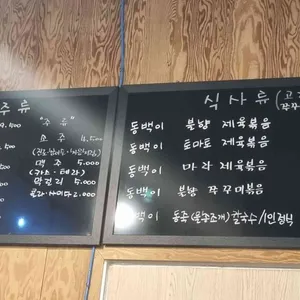 주류
"주류"
소주 4.500
맥주 5.000
(카스·테라)
막걸리 5.000
콜라·사이다 2.000
식사류 (고
동백이 불향 제육볶음
동백이 토마토 제육볶음
동백이 마라 제육볶음
동백이 불향 쭈꾸미볶음
동백이 동죽(물총조개) 칼국수/1인정식